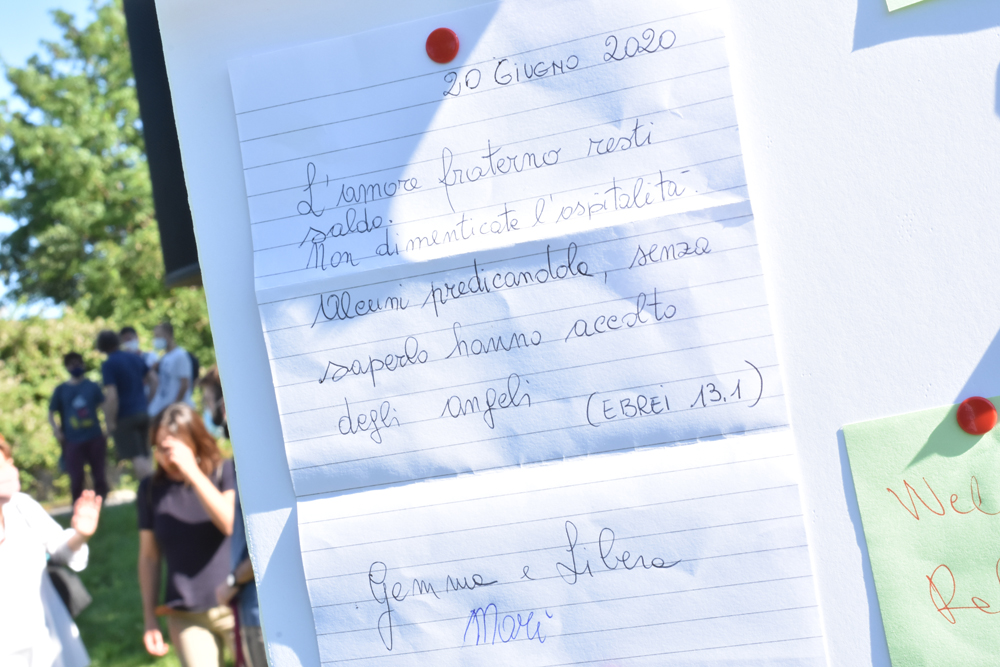 20 GIUGNO 2020
L'amore fraterno resti
saldo.
Non dimenticate l'ospitalità.
Alcuni predicandola, senza
saperlo hanno accolto
degli angeli (EBREI 13.1)
Gemma e Libera
Mari
Wel
Re